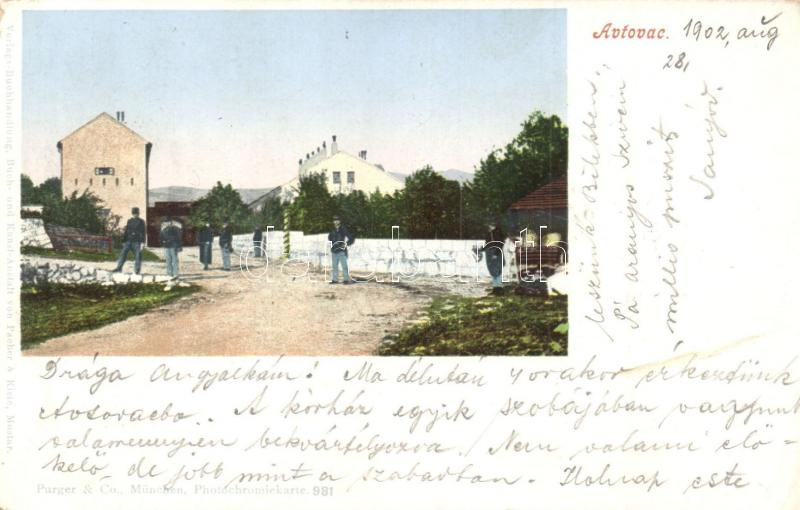 Avtovac. 1902, aug
28,
Drága Angyalkám! Ma délután 4 órakor érkeztünk
Avtovacba. A kórház egyik szobájában vagyunk
valamennyien bekvártélyozva. Nem valami elő-
kelő, de jobb mint a szabadban. Holnap este
leszünk Bilekben.
Pá aranyos szívem
millió puszit
Sanyid.
Purger & Co., München, Photochromiekarte. 981
Verlags-Buchhandlung, Buch- und Kunst-Anstalt von Pacher & Kisić, Mostar.
darabanth